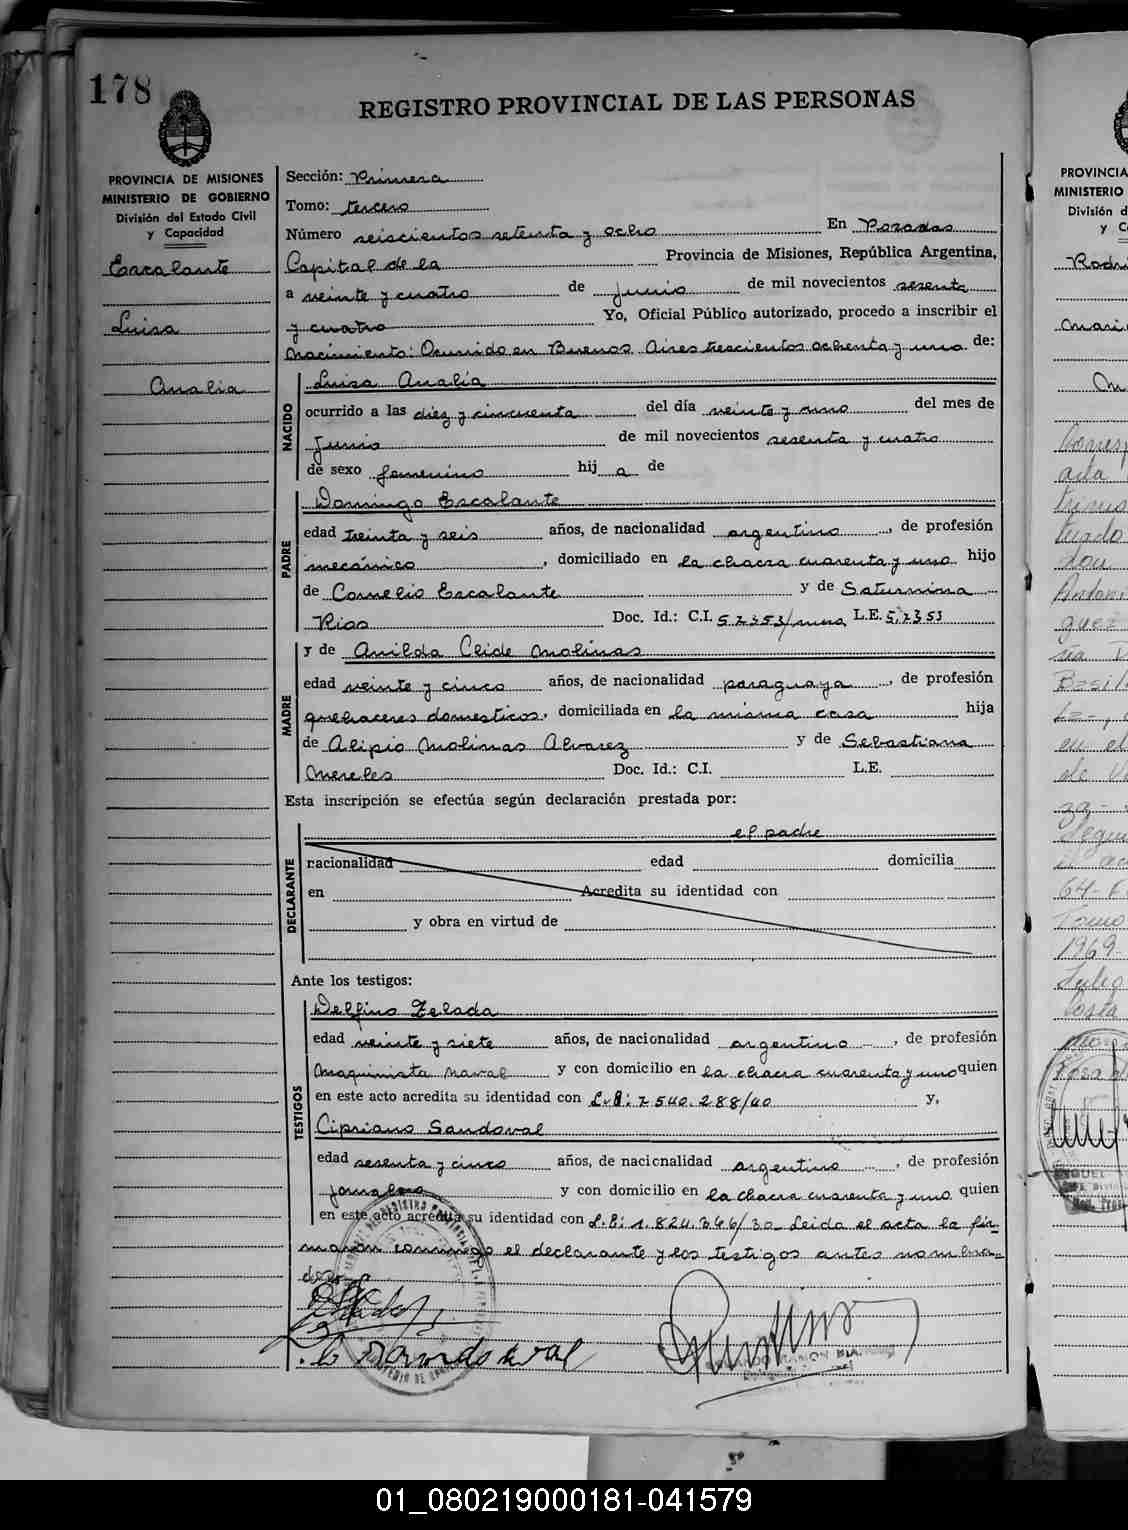 178
REGISTRO PROVINCIAL DE LAS PERSONAS
PROVINCIA DE MISIONES
MINISTERIO DE GOBIERNO
División del Estado Civil
y Capacidad
Escalante
Luisa
Analia
Sección: Primera
Tomo: tercero
Número seiscientos setenta y ocho En Posadas
Capital de la Provincia de Misiones, República Argentina,
a veinte y cuatro de Junio de mil novecientos sesenta
y cuatro Yo, Oficial Público autorizado, procedo a inscribir el
Nacimiento: Ocurrido en Buenos Aires trescientos ochenta y uno de:
NACIDO
Luisa Analía
ocurrido a las diez y cincuenta del día veinte y uno del mes de
Junio de mil novecientos sesenta y cuatro
de sexo femenino hij a de
PADRE
Domingo Escalante
edad treinta y seis años, de nacionalidad argentino, de profesión
mecánico, domiciliado en la chacra cuarenta y uno hijo
de Cornelio Escalante y de Saturnina
Rios Doc. Id.: C.I. 57353/mnes L.E. 57353
MADRE
y de Anilda Clide Molinas
edad veinte y cinco años, de nacionalidad paraguaya, de profesión
quehaceres domesticos, domiciliada en la misma casa hija
de Alipio Molinas Alvarez y de Sebastiana
Mereles Doc. Id.: C.I. L.E.
Esta inscripción se efectúa según declaración prestada por:
DECLARANTE
el padre
nacionalidad edad domicilia
en Acredita su identidad con
y obra en virtud de
Ante los testigos:
TESTIGOS
Delfino Zelada
edad veinte y siete años, de nacionalidad argentino, de profesión
Maquinista naval y con domicilio en la chacra cuarenta y uno quien
en este acto acredita su identidad con L.E: 7540.288/40 y,
Cipriano Sandoval
edad sesenta y cinco años, de nacionalidad argentino, de profesión
jornalero y con domicilio en la chacra cuarenta y uno quien
en este acto acredita su identidad con L.E: 1.824.346/30 Leida el acta la fir=
maron conmigo el declarante y los testigos antes nombra=
dos.
PROVINCIA
MINISTERIO
División d
y C
Rodri
Mari
acta
tuado
Antoni
guez
en el
64-
Tomo
1969-
Julio
01_080219000181-041579